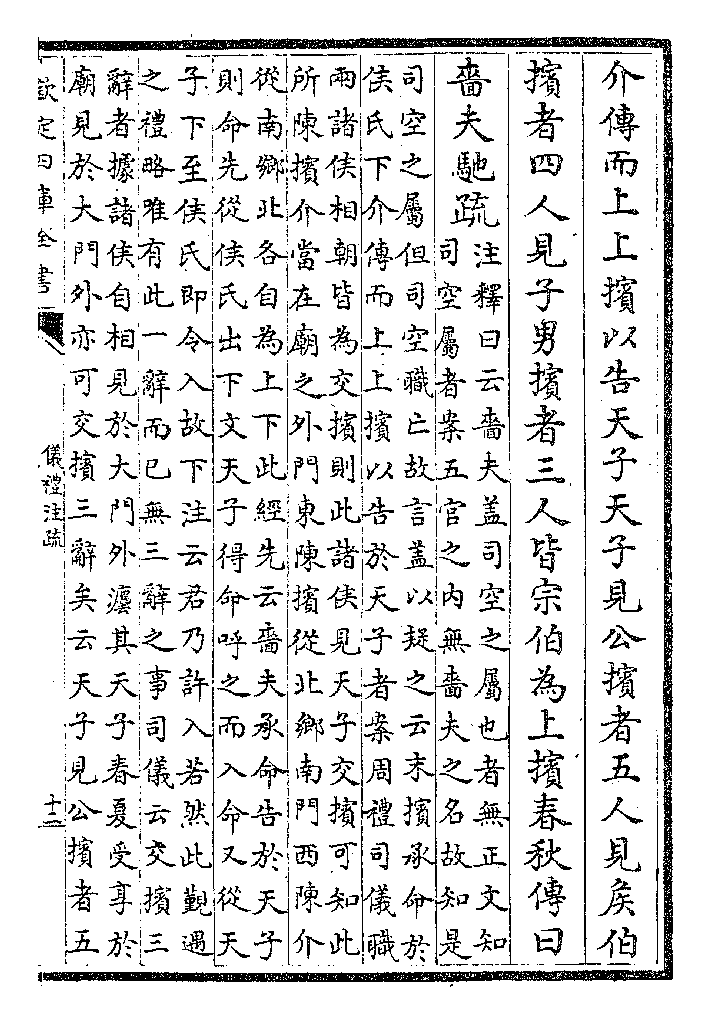 介傳而上上擯以告天子天子見公擯者五人見侯伯
擯者四人見子男擯者三人皆宗伯為上擯春秋傳曰
嗇夫馳疏
注釋曰云嗇夫盖司空之屬也者無正文知
司空屬者案五官之内無嗇夫之名故知是
司空之屬但司空職亡故言盖以疑之云末擯承命於
侯氏下介傳而上上擯以告於天子者案周禮司儀職
兩諸侯相朝皆為交擯則此諸侯見天子交擯可知此
所陳擯介當在廟之外門東陳擯從北鄉南門西陳介
從南鄉北各自為上下此經先云嗇夫承命告於天子
則命先從侯氏出下文天子得命呼之而入命又從天
子下至侯氏即令入故下注云君乃許入若然此覲遇
之禮略唯有此一辭而已無三辭之事司儀云交擯三
辭者據諸侯自相見於大門外灋其天子春夏受享於
廟見於大門外亦可交擯三辭矣云天子見公擯者五
欽定四庫全書
儀禮注疏
十二